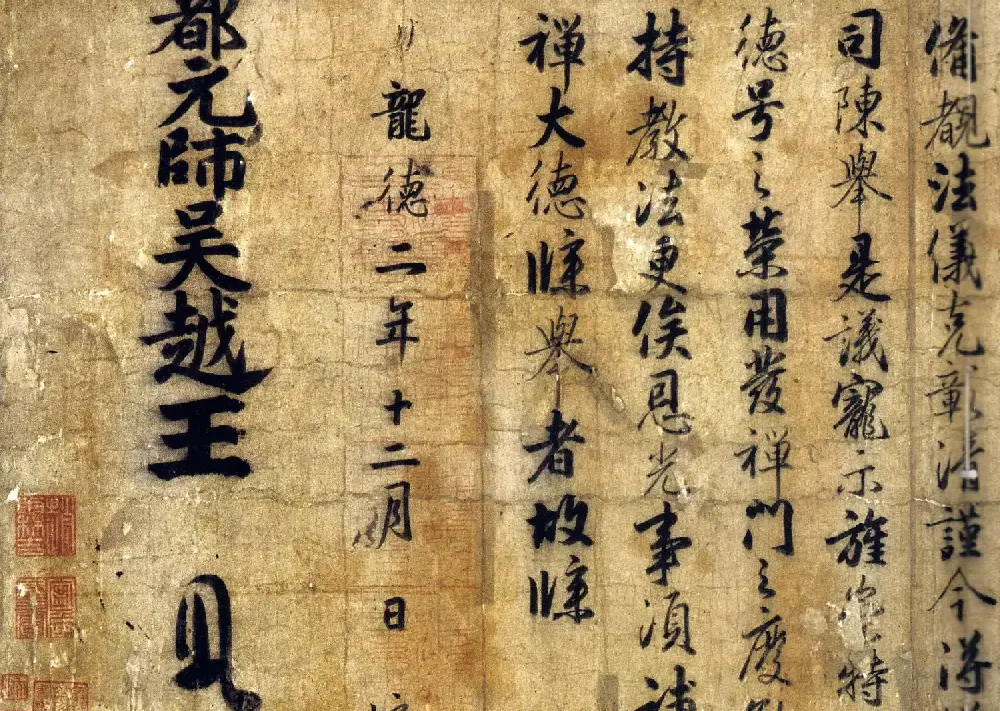 備覩法儀克彰清謹今得
司陳舉是議寵示旌
特
德号之榮用發禪門之慶
持教法更俟恩光事須補
禪大德牒舉者故牒
龍德二年十二月日
都元帥吴越王